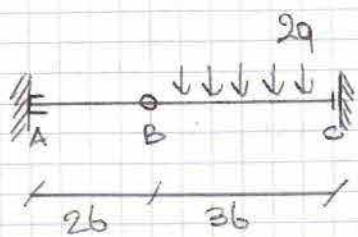 2q
A B C
2b 3b